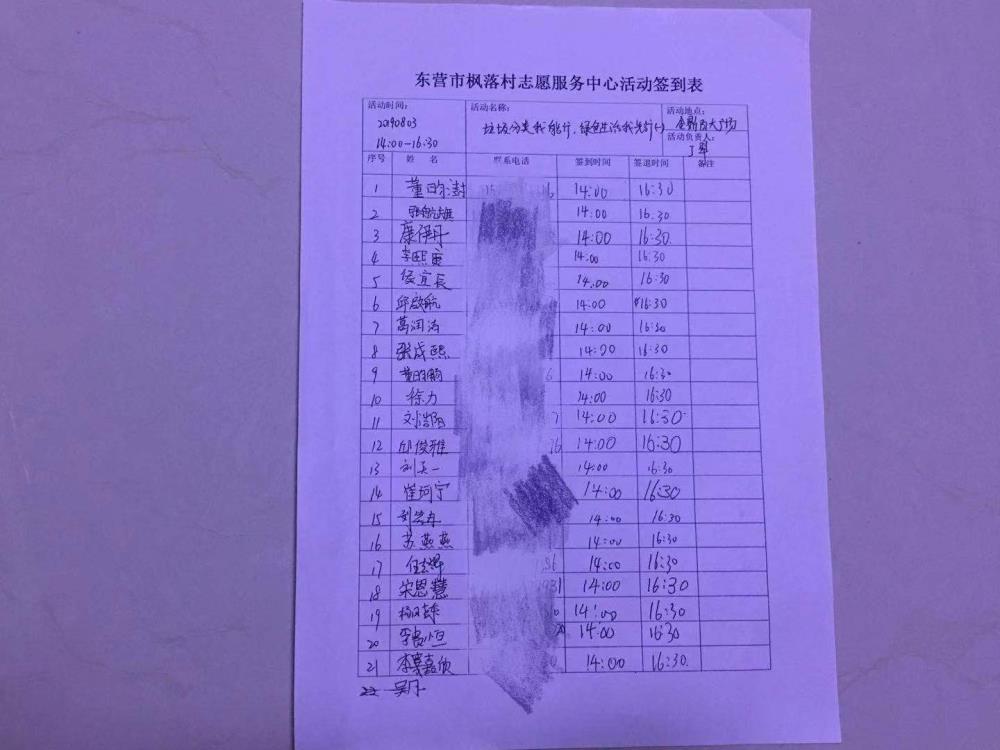 东营市枫落村志愿服务中心活动签到表
活动时间: 活动名称: 活动地点:
20190803 垃圾分类我能行,绿色生活我先行(一)
14:00-16:30 活动负责人:
丁翠
序号 姓 名 联系电话 签到时间 签退时间 备注
1 董昀澍 14:00 16:30
2 14:00 16:30
3 康伊丹 14:00 16:30
4 李熙寅 14:00 16:30
5 侯宜长 14:00 16:30
6 邱啟航 14:00 16:30
7 葛润洁 14:00 16:30
8 张成熙 14:00 16:30
9 6 14:00 16:30
10 徐力 14:00 16:30
11 刘浩阳 7 14:00 16:30
12 邱俊雅 14:00 16:30
13 刘天一 14:00 16:30
14 崔珂宁 14:00 16:30
15 14:00 16:30
16 苏燕燕 14:00 16:30
17 14:00 16:30
18 宋恩慧 14:00 16:30
19 14:00 16:30
20 14:00 16:30
21 李冀嘉欣 14:00 16:30
22 吴丹